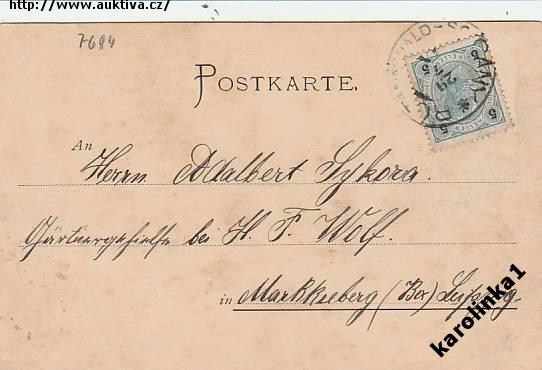 http://www.auktiva.cz/
7684
POSTKARTE.
An
Herrn Adalbert Sykora.
Gärtnergehielfe bei H. F. Wolf.
in Markkleeberg (Bez.) Leipzig
5
5
HELLER
karolinka1